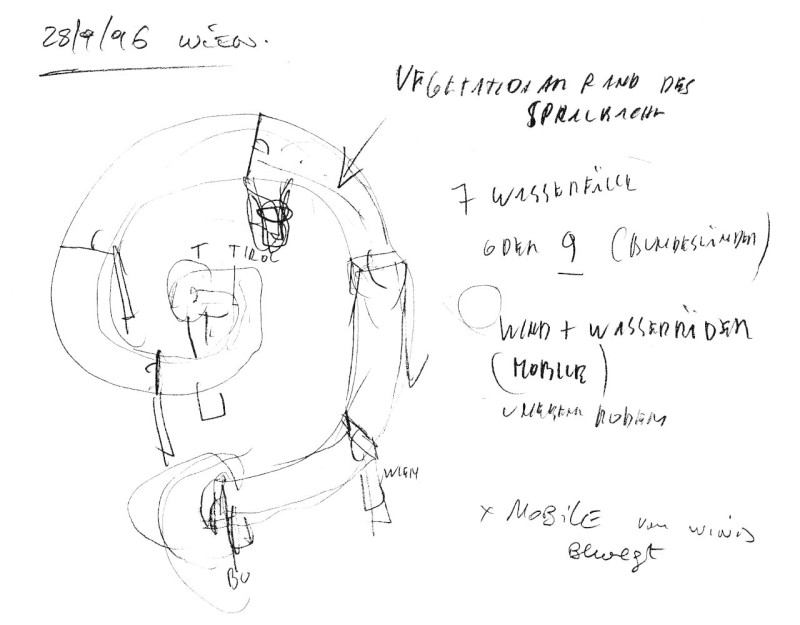 28/9/96 WIEN.
VEGETATION AM RAND DES
7 WASSERFÄLLE
ODER 9 (BUNDESLÄNDER)
T TIROL
WIND + WASSERRÄDER
(MOBILE)
WIEN
x MOBILE vom WIND
Bewegt
BU